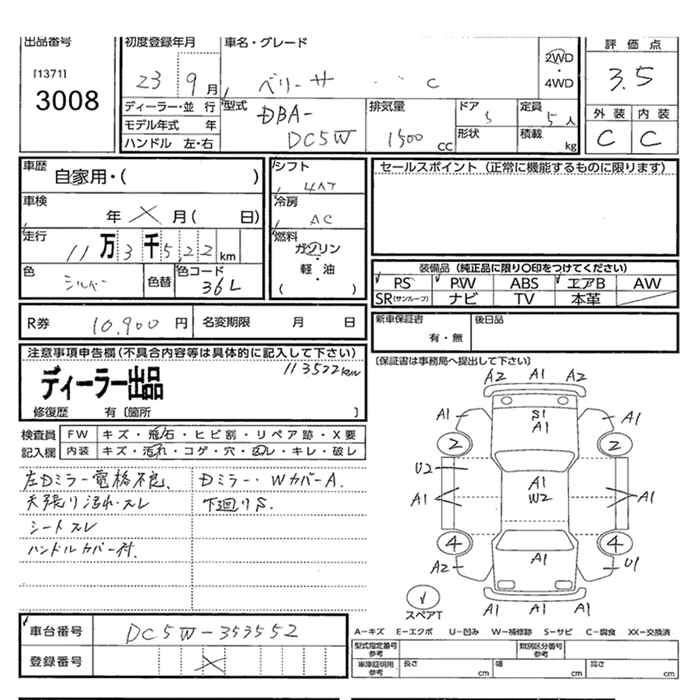 出品番号
[1371]
3008
初度登録年月
23 9 月
車名・グレード
ベリーサ C
2WD
・
4WD
評価点
3.5
外装 内装
C C
ディーラー・並 行
モデル年式 年
ハンドル 左・右
型式
DBA-
DC5W
排気量
1500 cc
ドア
5
形状
定員
5人
積載
kg
車歴
自家用・( )
車検
年 × 月( 日)
走行
11万3千522 km
色
シルバー
色替
色コード
36L
シフト
4AT
冷房
AC
燃料
ガソリン
・
軽 油
( )
セールスポイント(正常に機能するものに限ります)
装備品(純正品に限り〇印をつけてください)
PS PW ABS エアB AW
SR(サンルーフ) ナビ TV 本革
R券 10,900 円 名変期限 月 日
新車保証書
有・無
後日品
(保証書は事務局へ提出して下さい)
注意事項申告欄(不具合内容等は具体的に記入して下さい)
113522km
ディーラー出品
修復歴 有〔箇所 〕
検査員
記入欄
FW キズ・飛石・ヒビ割・リペア跡・X要
内装 キズ・汚れ・コゲ・穴・スレ・キレ・破レ
左Dミラー電格不良、 Dミラー・WカバーA.
天張り汚れ・スレ 下廻りS.
シートスレ
ハンドルカバー付.
A2 A1 A2
A1 S1 A1
A1
2 2
U2
A1
A1 W2 A1
4 4
A2 A1 U1
A1 A1 A1
スペアT
車台番号 DC5W-353552
登録番号 ×
A-キズ E-エクボ U-凹み W-補修跡 S-サビ C-腐食 XX-交換済
型式指定番号
参考
類別区分番号
参考
車庫証明用
参考
長さ cm 幅 cm 高さ cm